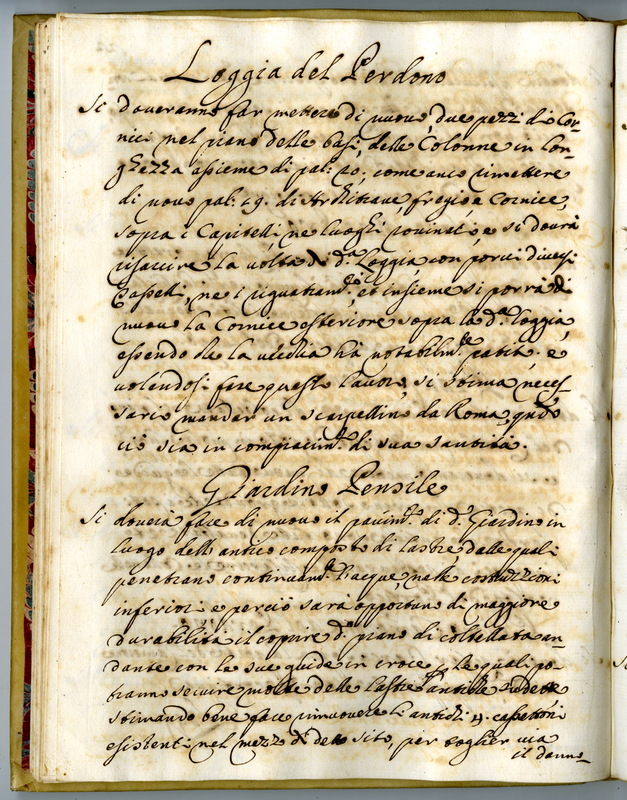 Loggia del Perdono
Si doveranno far mettere di nuovo, due pezzi di Cor-
nici nel piano delle basi, delle Colonne in lon-
ghezza assieme di pal: 20; come anco rimettere
di novo pal: 19. di Architrave, fregio, e Cornice,
sopra i Capitelli ne luoghi rovinati; e si dourà
risarcire la volta di d.ª Loggia, con porvi diversi
Tasselli, ne i riquatram.ti, et insieme si porrà di
nuovo la Cornice esteriore sopra la d.ª loggia,
essendo che la vecchia hà notabilm.te patito. e
volendosi fare questo lavoro, si stima neces-
sario mandar un scarpellino da Roma, qndo
ciò sia in compiacim.to di sua santità.
Giardino Pensile
Si dovrà fare di nuovo il pavim.to di d.º Giardino in
luogo dell antico composto di lastre, dalle quali
penetrano continuam.te l'acque, nelle costruzzioni
inferiori e perciò sarà opportuno di maggiore
durabilità il coprire d.º piano di coltellata an-
dante con le sue guide in croce, le quali po-
tranno servire molte delle lastre antiche sudette
stimando bene face rimuovere li antichi 4. cassettoni
esistenti nel mezzo di detto sito, per toglier via
il danno